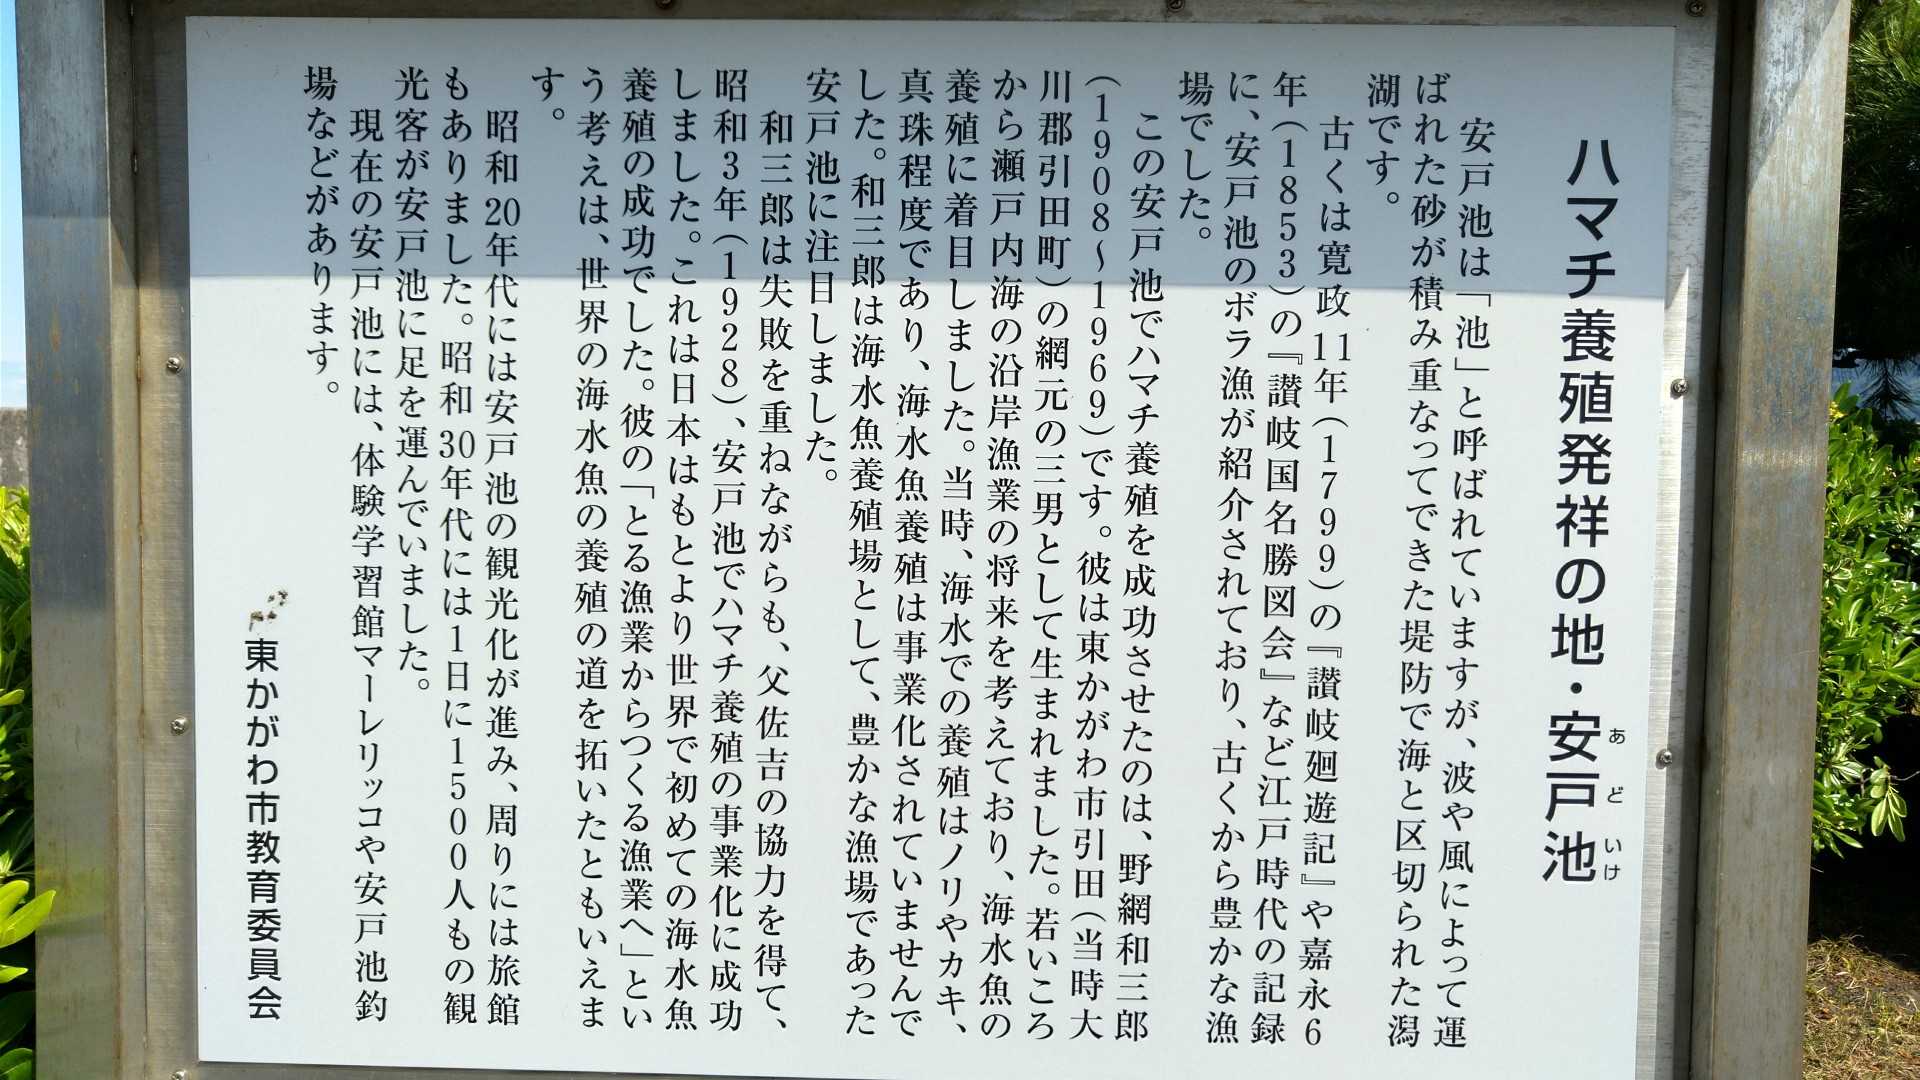 ハマチ養殖発祥の地・安戸池
あどいけ
安戸池は「池」と呼ばれていますが、波や風によって運
ばれた砂が積み重なってできた堤防で海と区切られた潟
湖です。
古くは寛政11年（1799）の『讃岐廻遊記』や嘉永6
年（1853）の『讃岐国名勝図会』など江戸時代の記録
に、安戸池のボラ漁が紹介されており、古くから豊かな漁
場でした。
この安戸池でハマチ養殖を成功させたのは、野網和三郎
（1908～1969）です。彼は東かがわ市引田（当時大
川郡引田町）の網元の三男として生まれました。若いころ
から瀬戸内海の沿岸漁業の将来を考えており、海水魚の
養殖に着目しました。当時、海水での養殖はノリやカキ、
真珠程度であり、海水魚養殖は事業化されていませんで
した。和三郎は海水魚養殖場として、豊かな漁場であった
安戸池に注目しました。
和三郎は失敗を重ねながらも、父佐吉の協力を得て、
昭和3年（1928）、安戸池でハマチ養殖の事業化に成功
しました。これは日本はもとより世界で初めての海水魚
養殖の成功でした。彼の「とる漁業からつくる漁業へ」とい
う考えは、世界の海水魚の養殖の道を拓いたともいえま
す。
昭和20年代には安戸池の観光化が進み、周りには旅館
もありました。昭和30年代には1日に1500人もの観
光客が安戸池に足を運んでいました。
現在の安戸池には、体験学習館マーレリッコや安戸池釣
場などがあります。
東かがわ市教育委員会